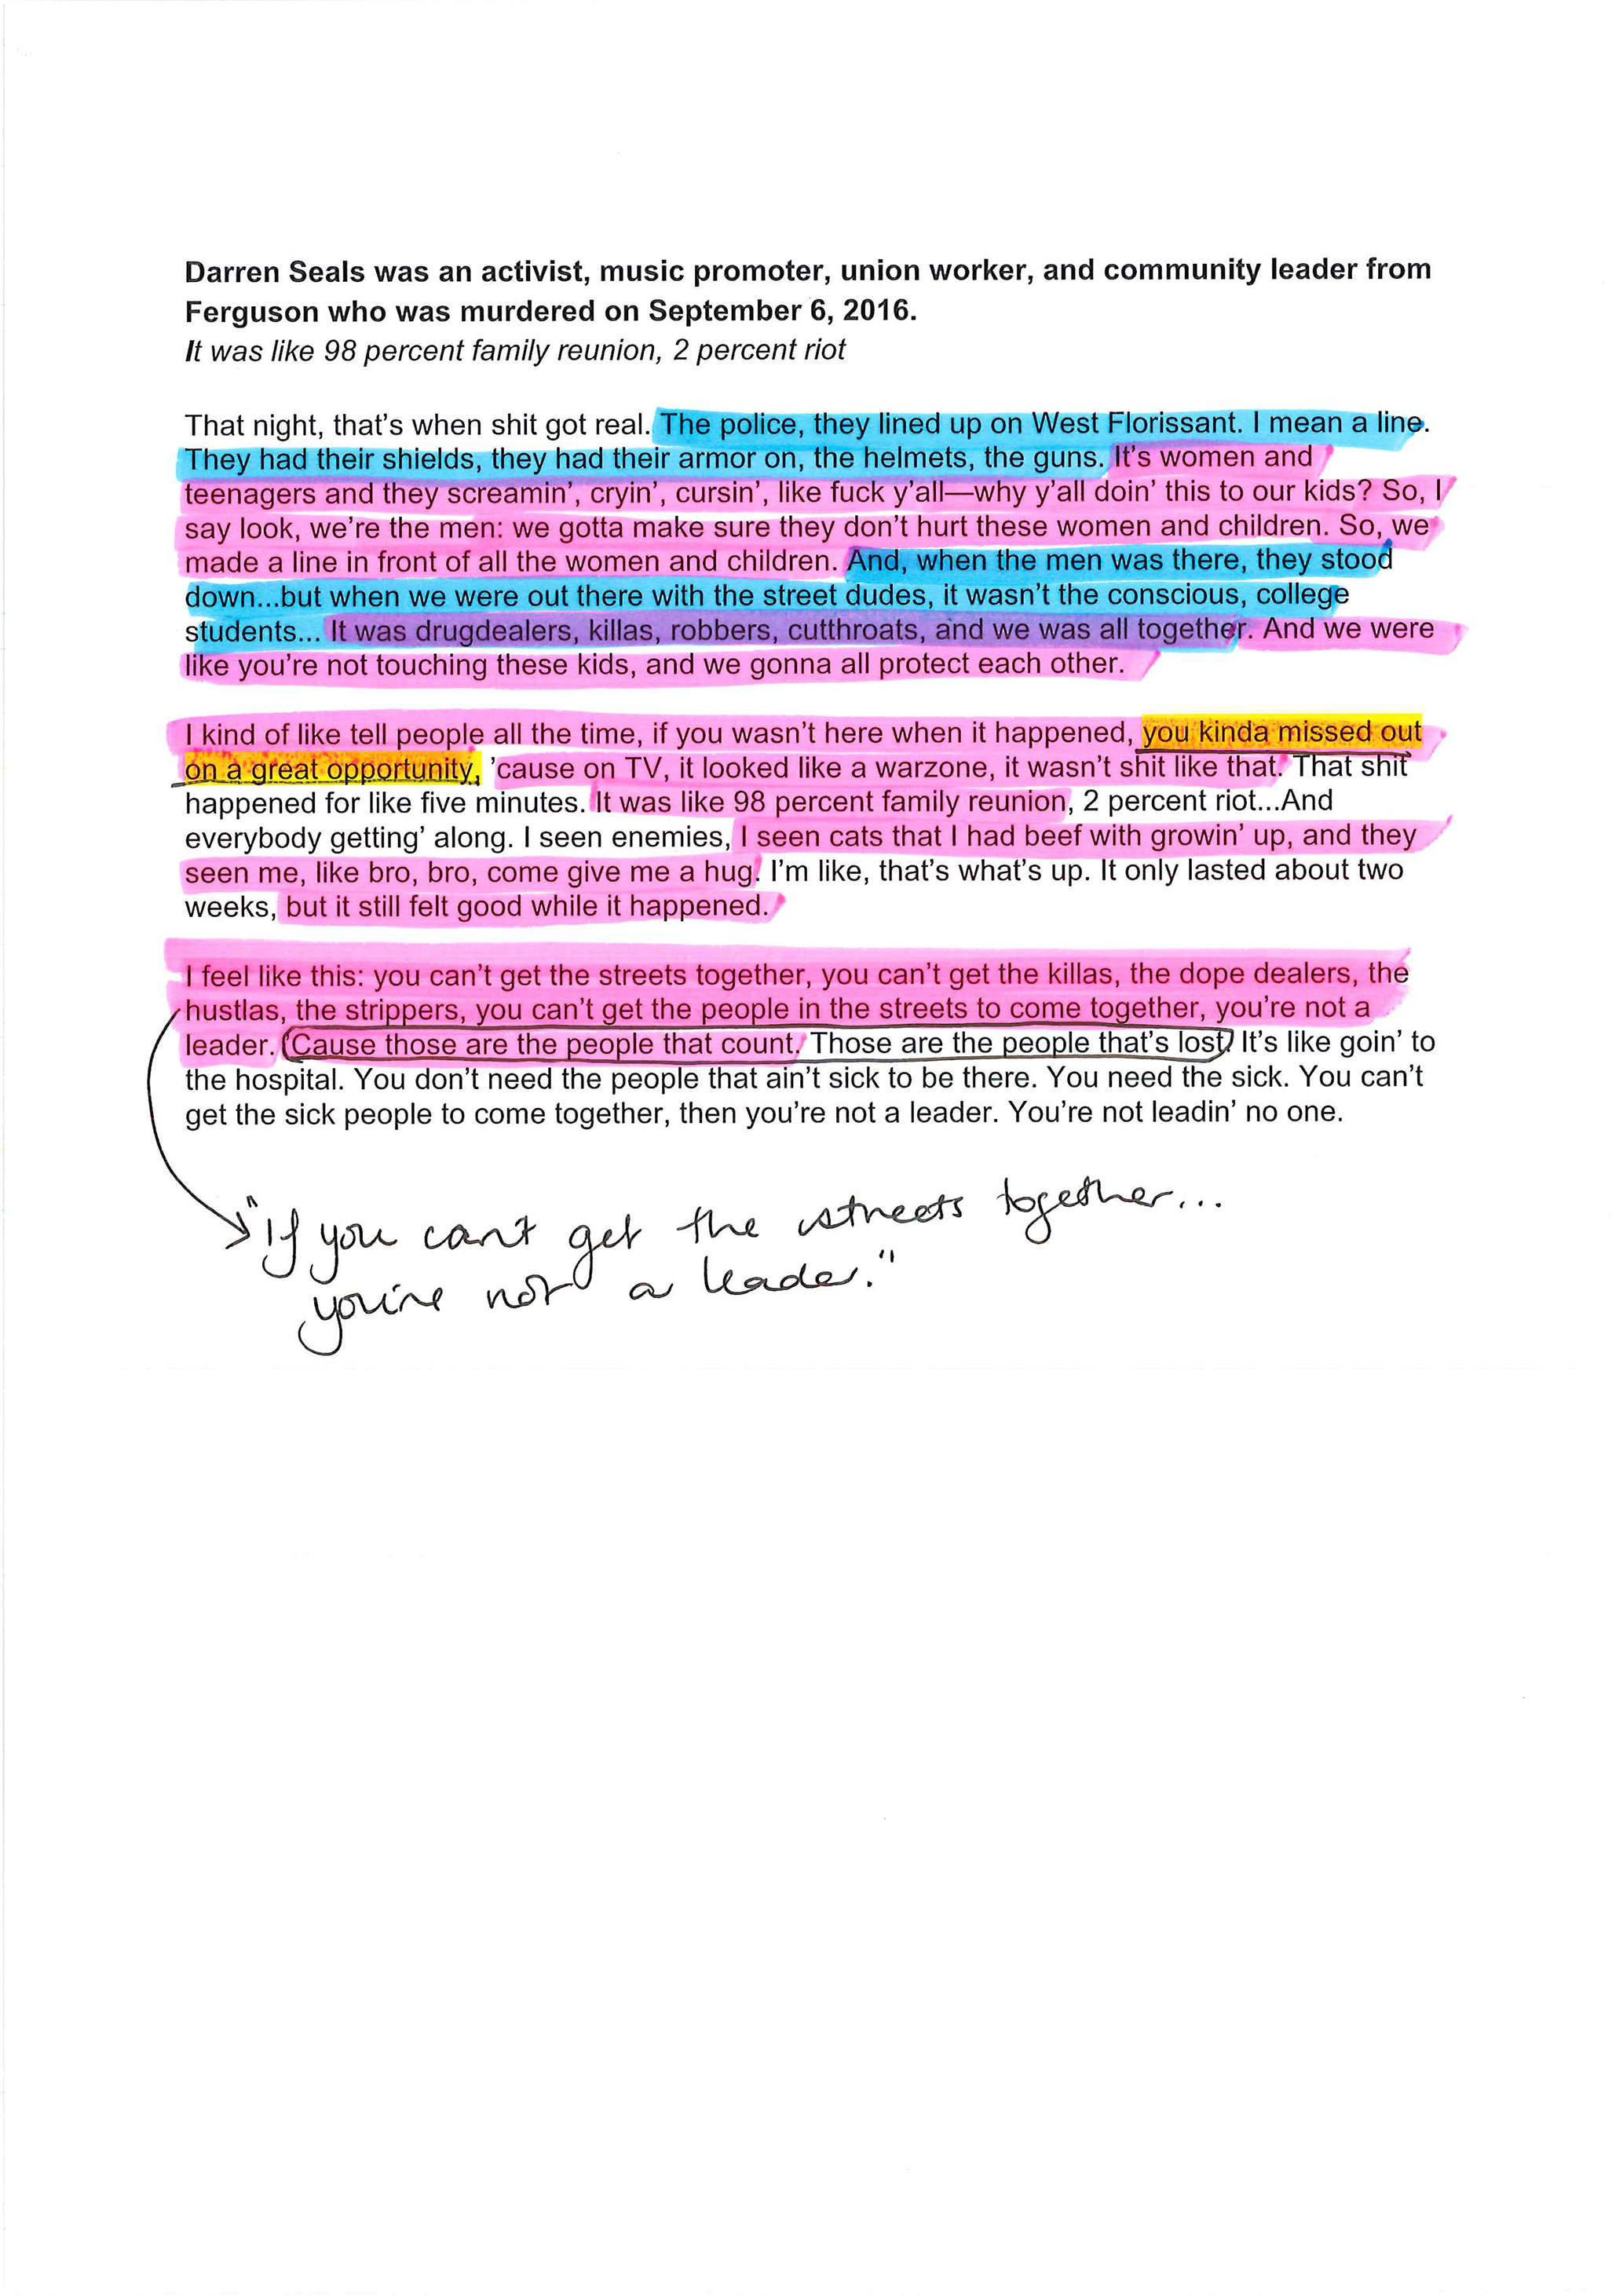 Darren Seals was an activist, music promoter, union worker, and community leader from
Ferguson who was murdered on September 6, 2016.
It was like 98 percent family reunion, 2 percent riot
That night, that's when shit got real. The police, they lined up on West Florissant. I mean a line.
They had their shields, they had their armor on, the helmets, the guns. It's women and
teenagers and they screamin', cryin', cursin', like fuck y'all—why y'all doin' this to our kids? So, I
say look, we're the men: we gotta make sure they don't hurt these women and children. So, we
made a line in front of all the women and children. And, when the men was there, they stood
down...but when we were out there with the street dudes, it wasn't the conscious, college
students... It was drugdealers, killas, robbers, cutthroats, and we was all together. And we were
like you're not touching these kids, and we gonna all protect each other.
I kind of like tell people all the time, if you wasn't here when it happened, you kinda missed out
on a great opportunity, 'cause on TV, it looked like a warzone, it wasn't shit like that. That shit
happened for like five minutes. It was like 98 percent family reunion, 2 percent riot...And
everybody getting' along. I seen enemies, I seen cats that I had beef with growin' up, and they
seen me, like bro, bro, come give me a hug. I'm like, that's what's up. It only lasted about two
weeks, but it still felt good while it happened.
I feel like this: you can't get the streets together, you can't get the killas, the dope dealers, the
hustlas, the strippers, you can't get the people in the streets to come together, you're not a
leader. Cause those are the people that count. Those are the people that's lost. It's like goin' to
the hospital. You don't need the people that ain't sick to be there. You need the sick. You can't
get the sick people to come together, then you're not a leader. You're not leadin' no one.
"If you can't get the streets together...
you're not a leader."